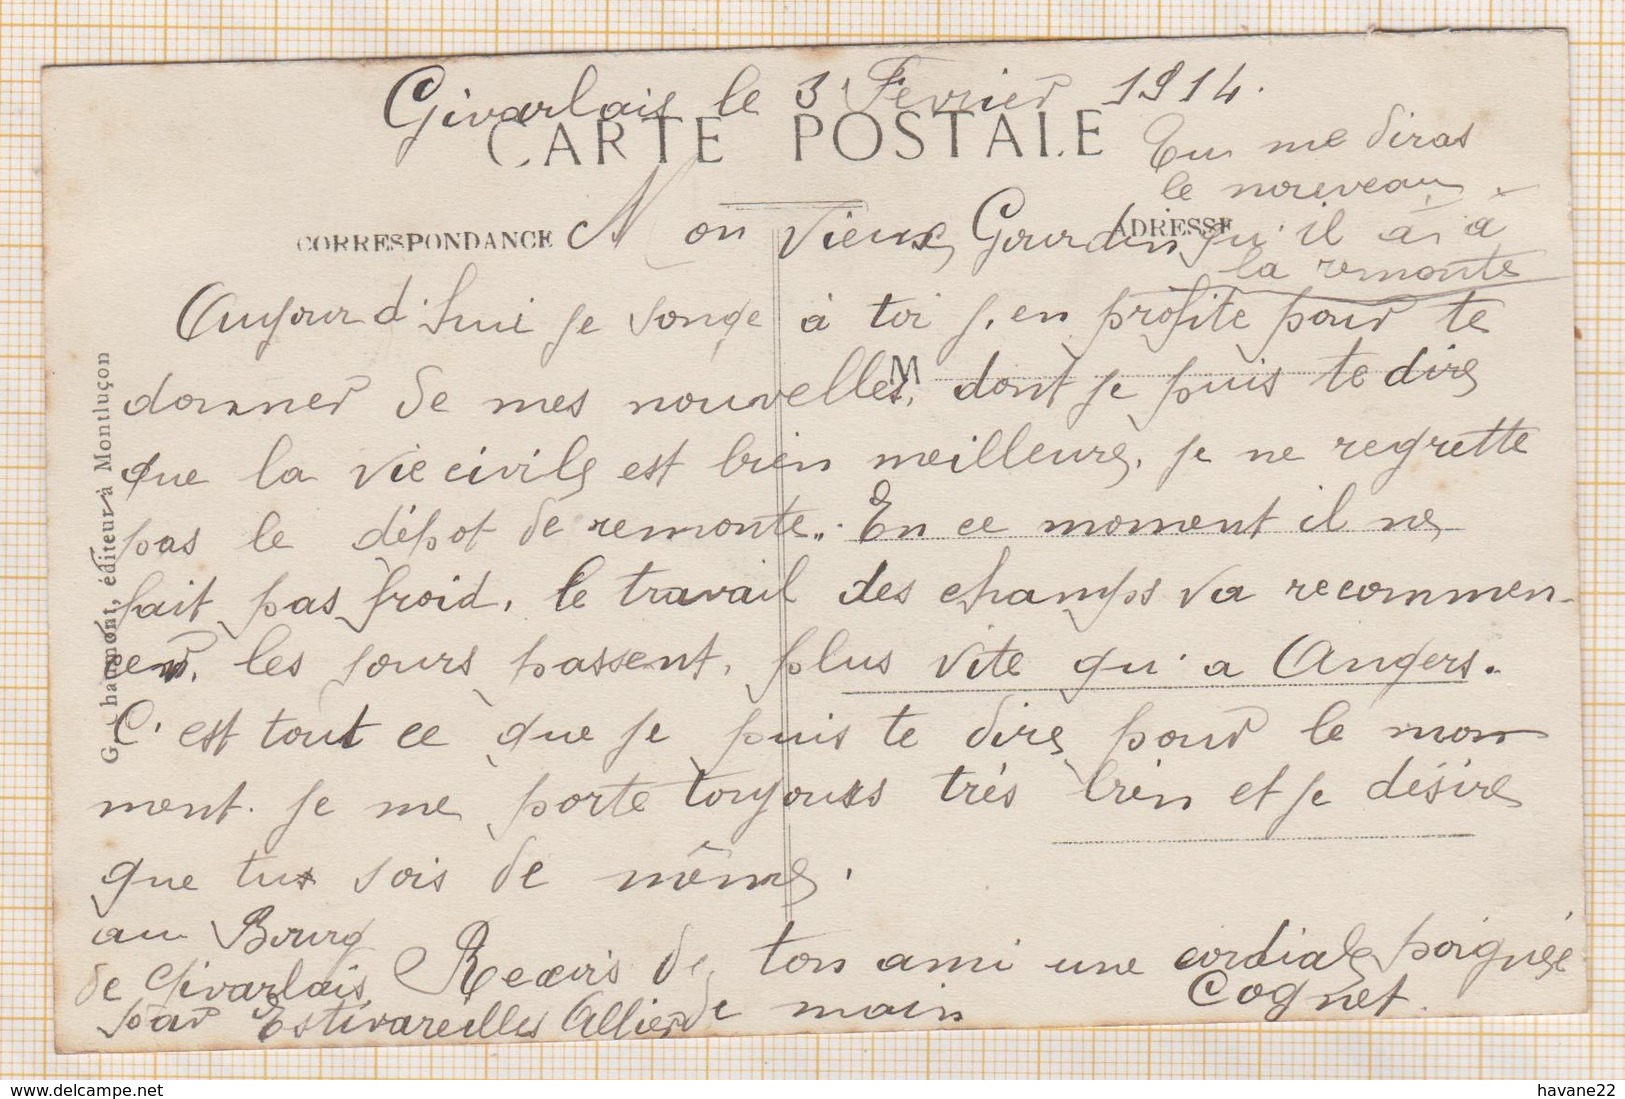 Givarlais le 3 Fevrier 1914.
CARTE POSTALE
Tu me diras
le nouveau
qu'il à à
la remonte
CORRESPONDANCE
ADRESSE
Mon vieux Gourdin
Aujourd'hui je songe à toi j,en profite pour te
donner de mes nouvelles, dont je puis te dire
que la vie civile est bien meilleure, je ne regrette
pas le dépot de remonte. En ce moment il ne
fait pas froid, le travail des champs va recommen-
cer, les jours passent, plus vite qu'a Angers.
C'est tout ce que je puis te dire pour le mom
ment. je me porte toujours très bien et je désire
que tu sois de même.
Recevis de ton ami une cordiale poignée
de main
Cognet.
au Bourg
de Givarlais
par Estivareilles Allier
G. Chaumont, éditeur à Montluçon
havane22